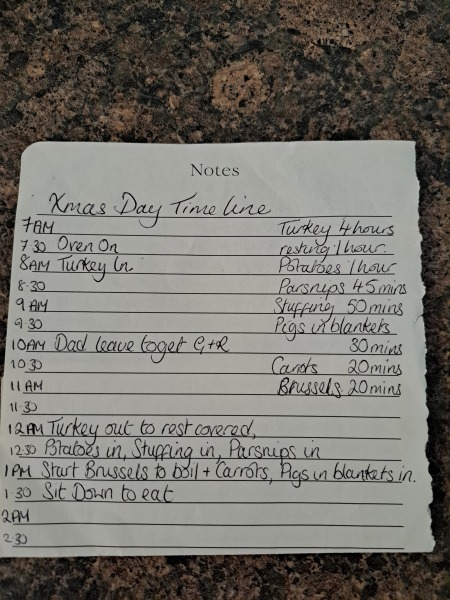 Notes
Xmas Day Time line
7AM Turkey 4 hours
7 30 Oven On resting 1 hour.
8AM Turkey In Potatoes 1 hour
8.30 Parsnips 45 mins
9AM Stuffing 50 mins
9.30 Pigs in blankets
10AM Dad leave to get G+R 30 mins
10.30 Carrots 20 mins
11AM Brussels 20 mins
11.30
12AM Turkey out to rest covered,
12.30 Potatoes in, Stuffing in, Parsnips in
1PM Start Brussels to boil + Carrots, Pigs in blankets in.
1.30 Sit Down to eat
2AM
2.30